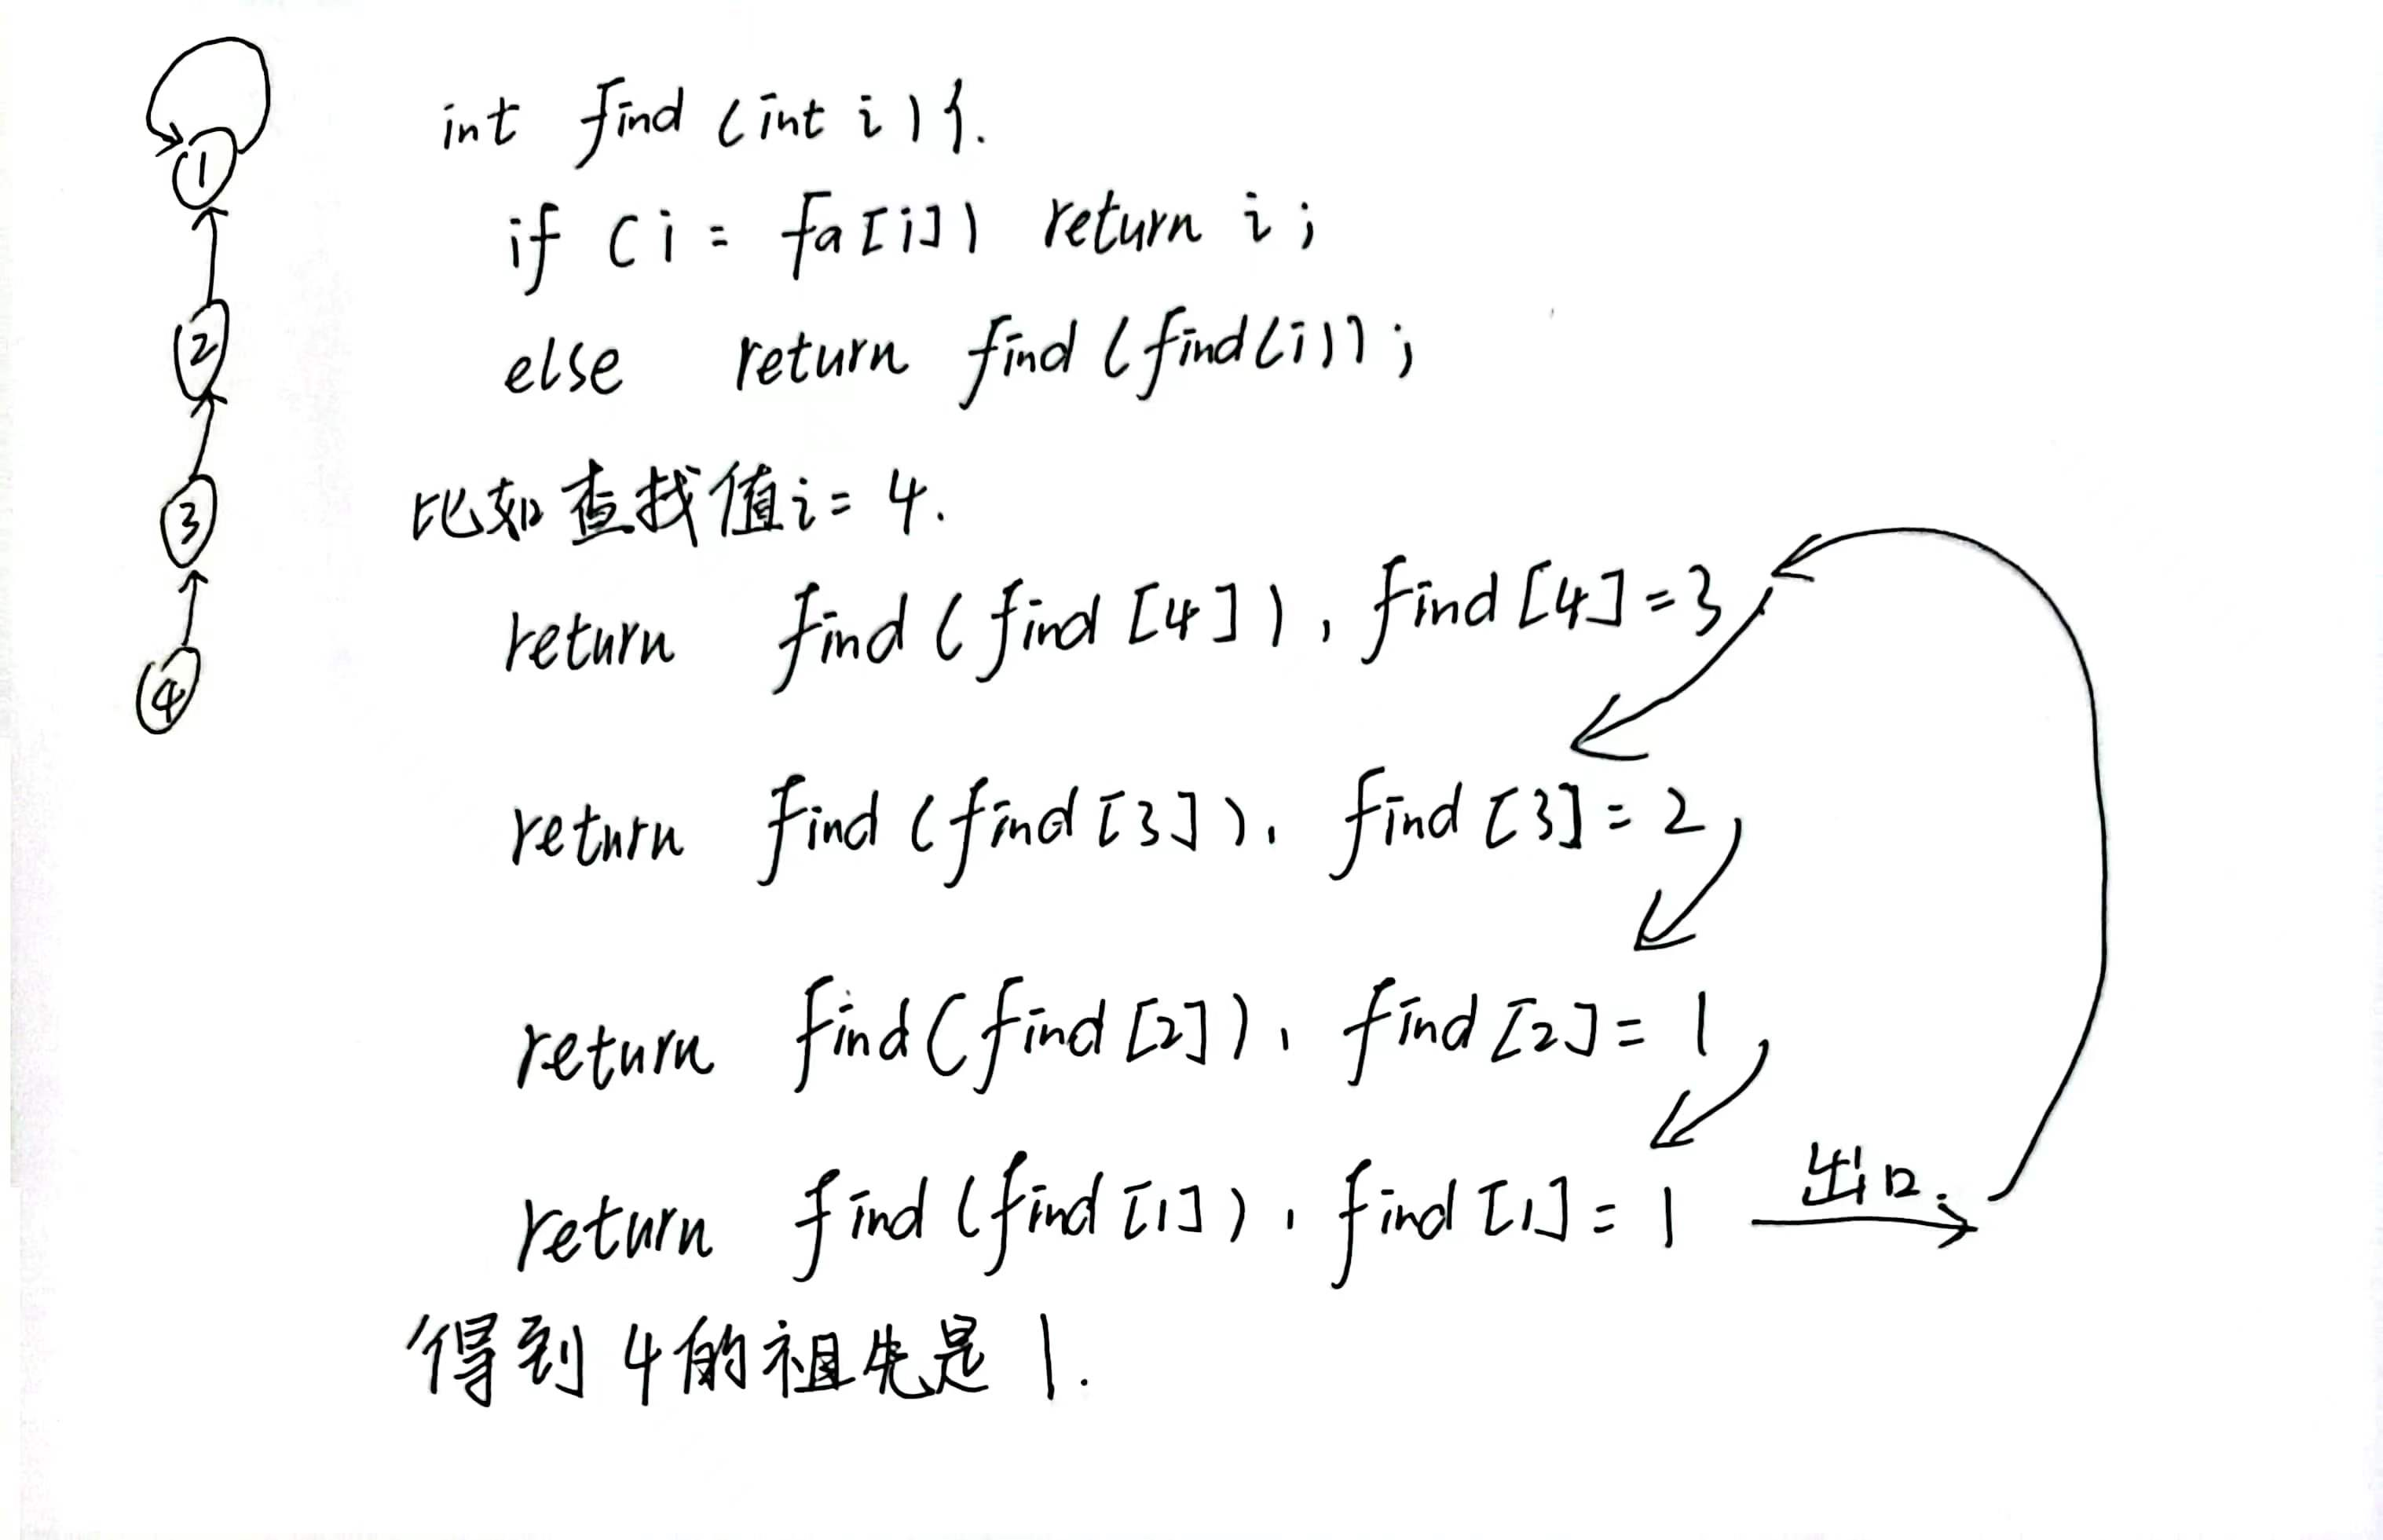 ①
②
③
④
int find (int i){.
if (i = fa[i]) return i;
else return find (find(i));
比如查找值i=4.
return find (find [4]), find [4]=3
return find (find [3]), find [3]=2
return find (find [2]), find [2]=1
return find (find [1]), find [1]=1 出口.
得到4的祖先是1.